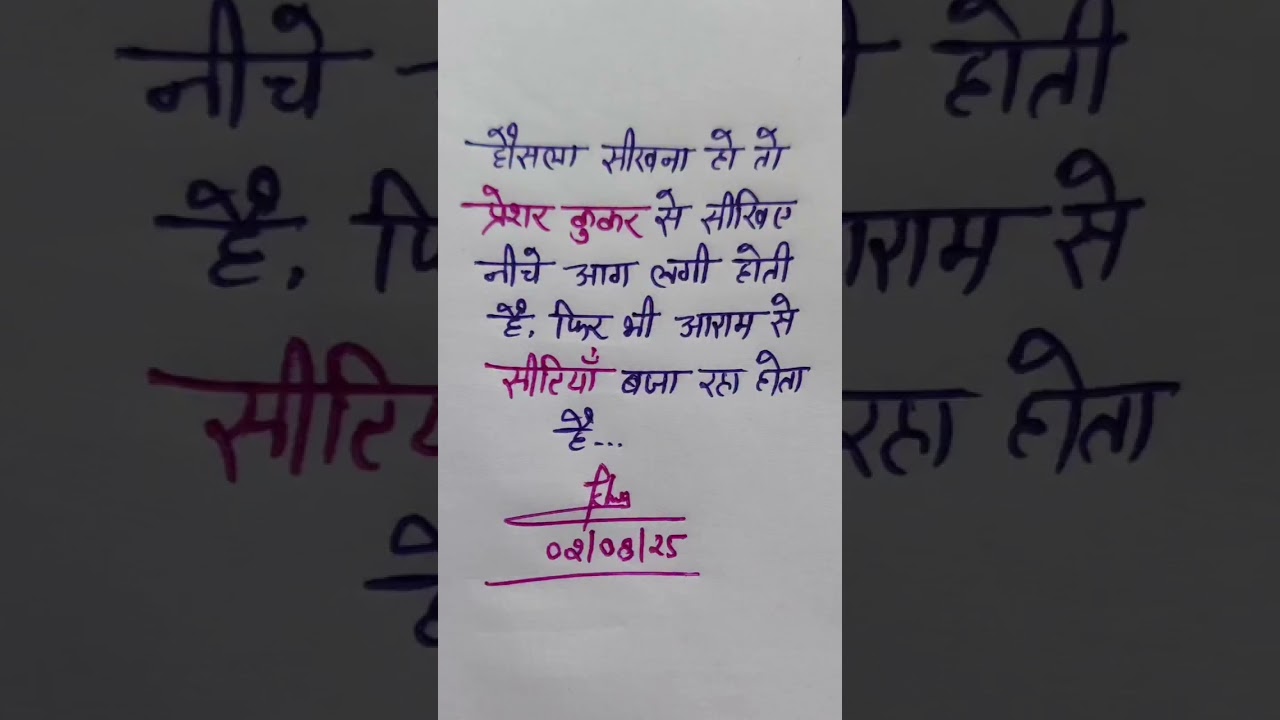 हौसला सीखना हो तो
प्रेशर कुकर से सीखिए
नीचे आग लगी होती
है, फिर भी आराम से
सीटियाँ बजा रहा होता
है...
02/08/25